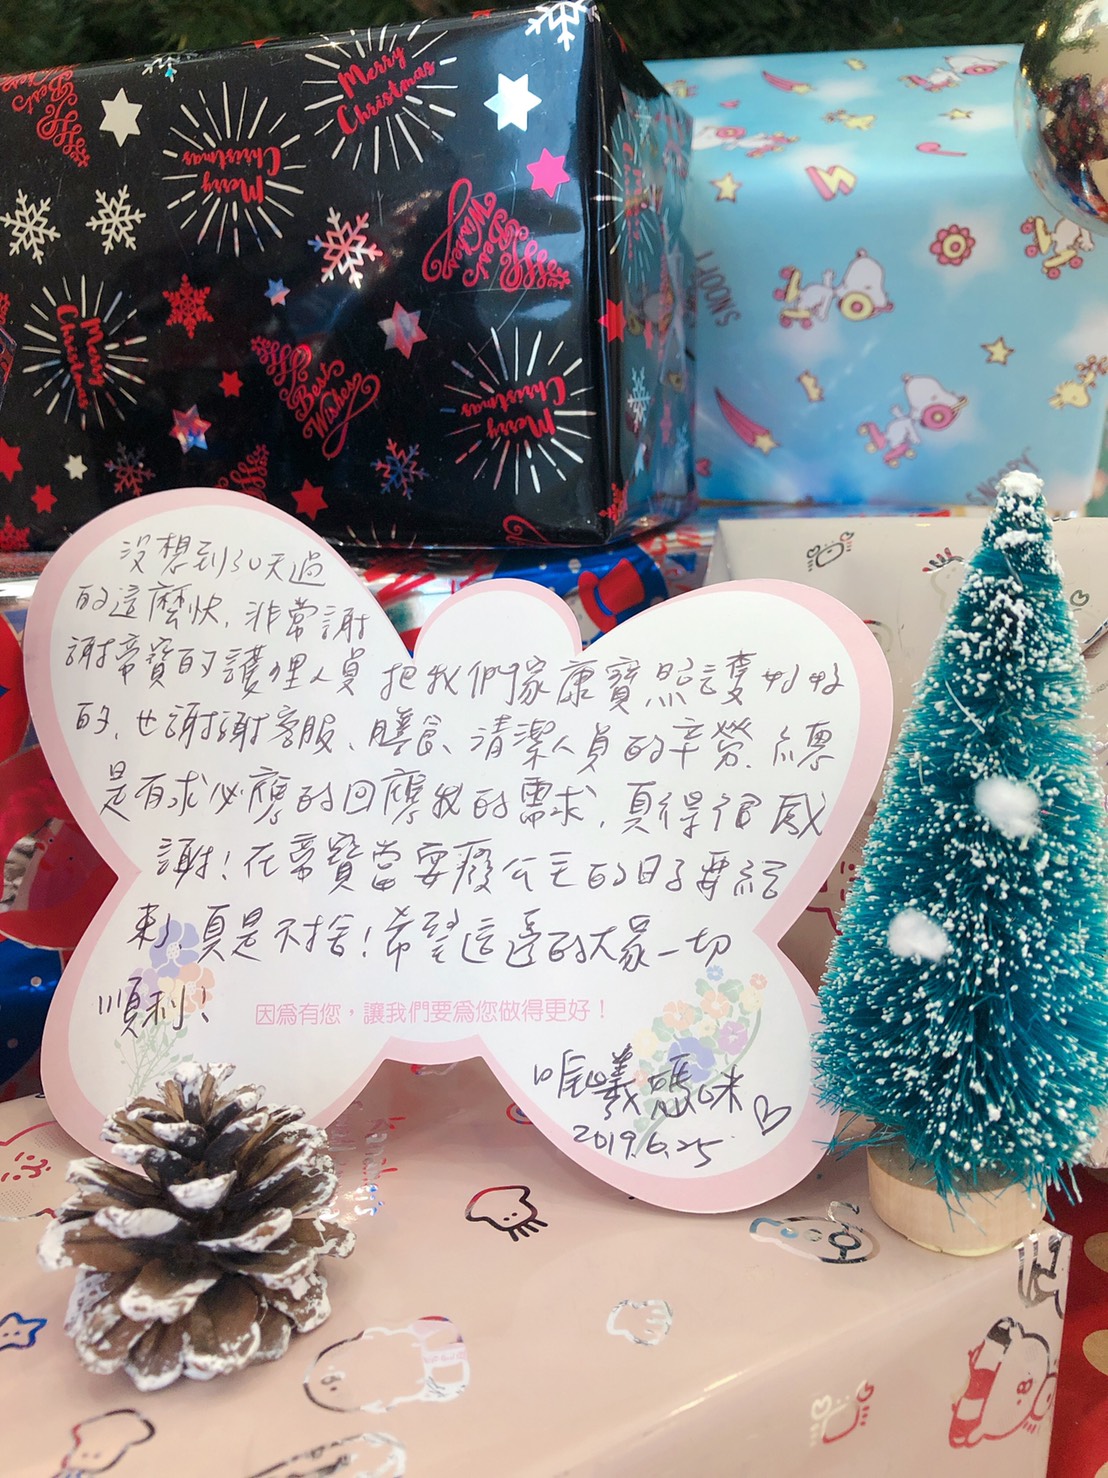 Merry
Christmas
Merry
Christmas
Best
Wishes
Merry
Christmas
Best
Wishes
Merry
Christmas
SNOOPY
SNOOPY
沒想到30天過
的這麼快,非常謝
謝帝寶的護理人員 把我們家康寶照護好好
的、也謝謝客服、膳食、清潔人員的辛勞、總
是有求必應的回應我的需求,真得很感
謝!在帝寶當安廢公主的日子要結
束 真是不捨!希望這邊的大家一切
順利!
因為有您,讓我們要為您做得更好!
唯羲媽咪♡
2019.6.25